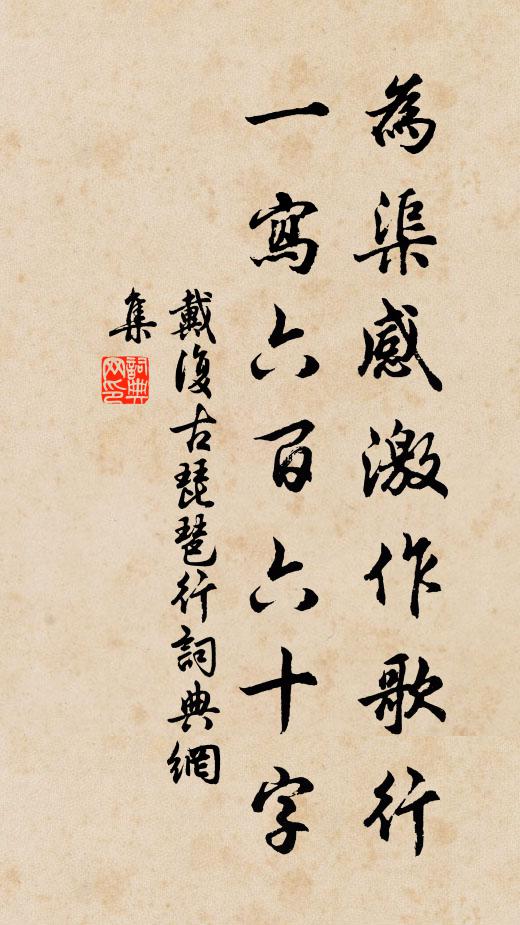 為渠感激作歌行
一寫六百六十字
戴復古琵琶行詞典網
集
詞典網印